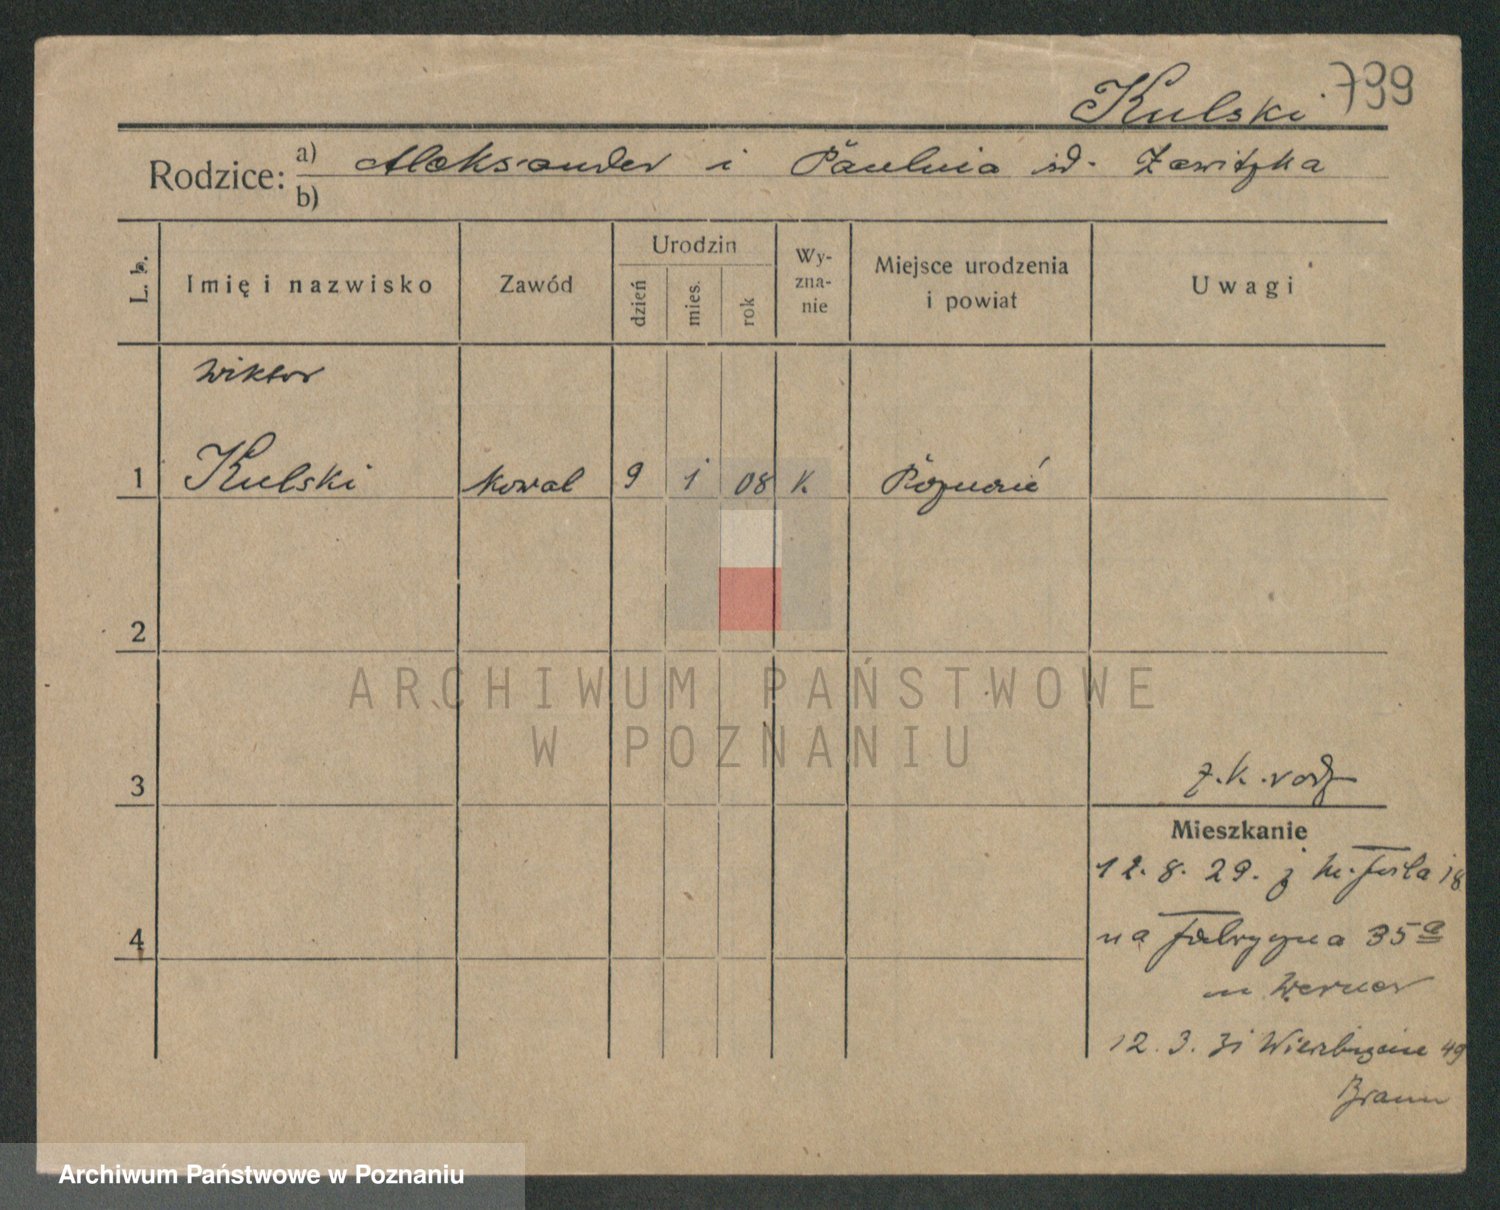 Kulski 799
Rodzice: a) Aleksander i Paulina Zawitzka
b)
L. b. Imię i nazwisko Zawód Urodzin dzień mies. rok Wyznanie Miejsce urodzenia i powiat Uwagi
Wiktor
1 Kulski kowal 9 1 08 k. Poznań
2
ARCHIWUM PAŃSTWOWE
W POZNANIU
3 z.k. rodz
Mieszkanie
12. 8. 29. z 18
4 na Fabryczna 35a
m Werner
12. 3. 31 Wierzbięcice 49
Braun
Archiwum Państwowe w Poznaniu